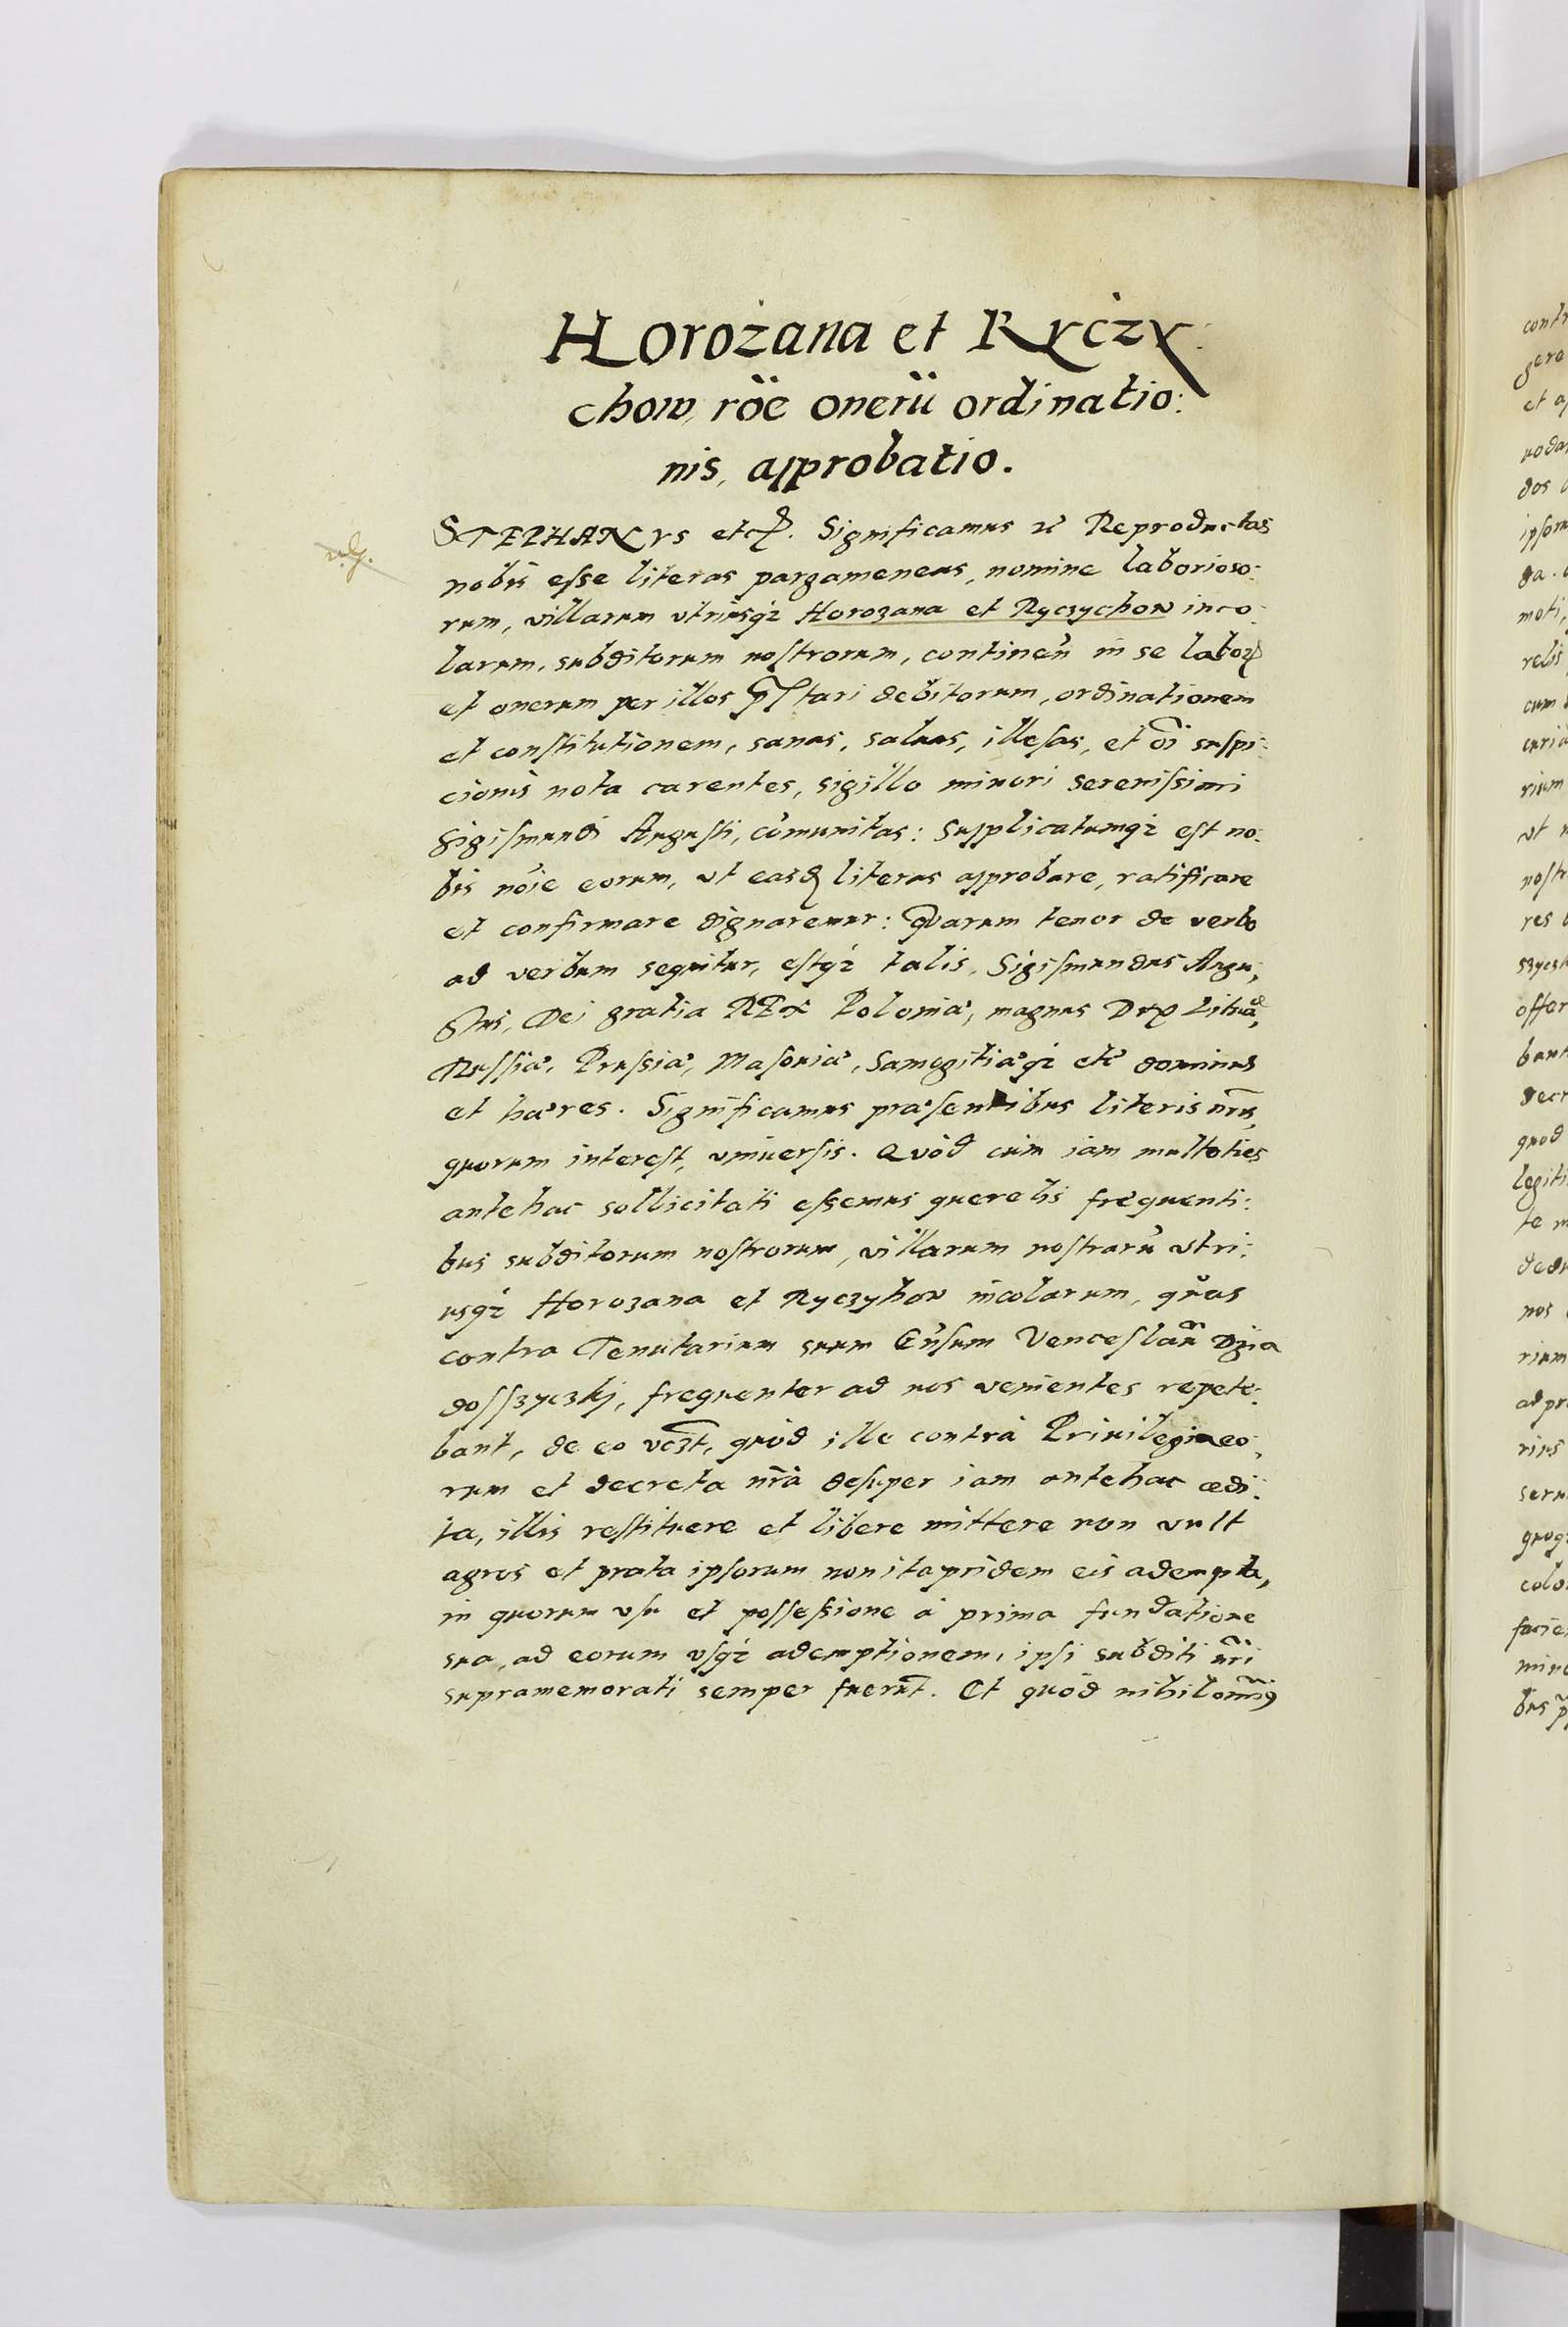 Horożana et Ryczy:
chow, rõe onerũ ordinatio:
nis, approbatio.
STEPHANVS etc. Significamus &c Reproductas
nobis esse literas pargameneas, nomine laborioso:
rum, villarum vtriusq; Horozana et Ryczychow inco:
larum, subditorum nostrorum, contineñ in se labor
et onerum per illos p̃stari debitorum, ordinationem
et constitutionem, sanas, saluas, illesas, et õi suspi:
cionis nota carentes, sigillo minori serenissimi
Sigismundi Augusti, cõmunitas: Supplicatumq; est no:
bis nõie eorum, vt easd literas approbare, ratificare
et confirmare dignaremur: Quarum tenor de verbo
ad verbum sequitur, estq; talis. Sigismundus Augu;
stus, Dei gratia REX Poloniæ, magnus Dux Lituæ,
Russiæ, Prussiæ, Masouiæ, Samogitiæq; etc dominus
et hæres. Significamus præsentibus literis nr̃is,
quorum interest, vniuersis. Quòd cum iam multoties
antehac sollicitati essemus querelis frequenti:
bus subditorum nostrorum, villarum nostrarũ vtri:
usq; Horozana et Ryczyhow incolarum, quas
contra Tenutarium suum Gñsum Venceslaũ Dzia
dosszyczkj, frequenter ad nos venientes repete:
bant, de eo vczt, quòd ille contrà Priuilegia eo:
rum et decreta nr̃a desuper iam antehac ædi:
ta, illis restituere et libere mittere non vult
agros et prata ipsorum non itapridem eis adempta,
in quorum vsu et possessione à prima fundatione
sua, ad eorum vsq; ademptionem, ipsi subditi nr̃i
supramemorati semper fuerũt. Et quòd nihilomĩ9